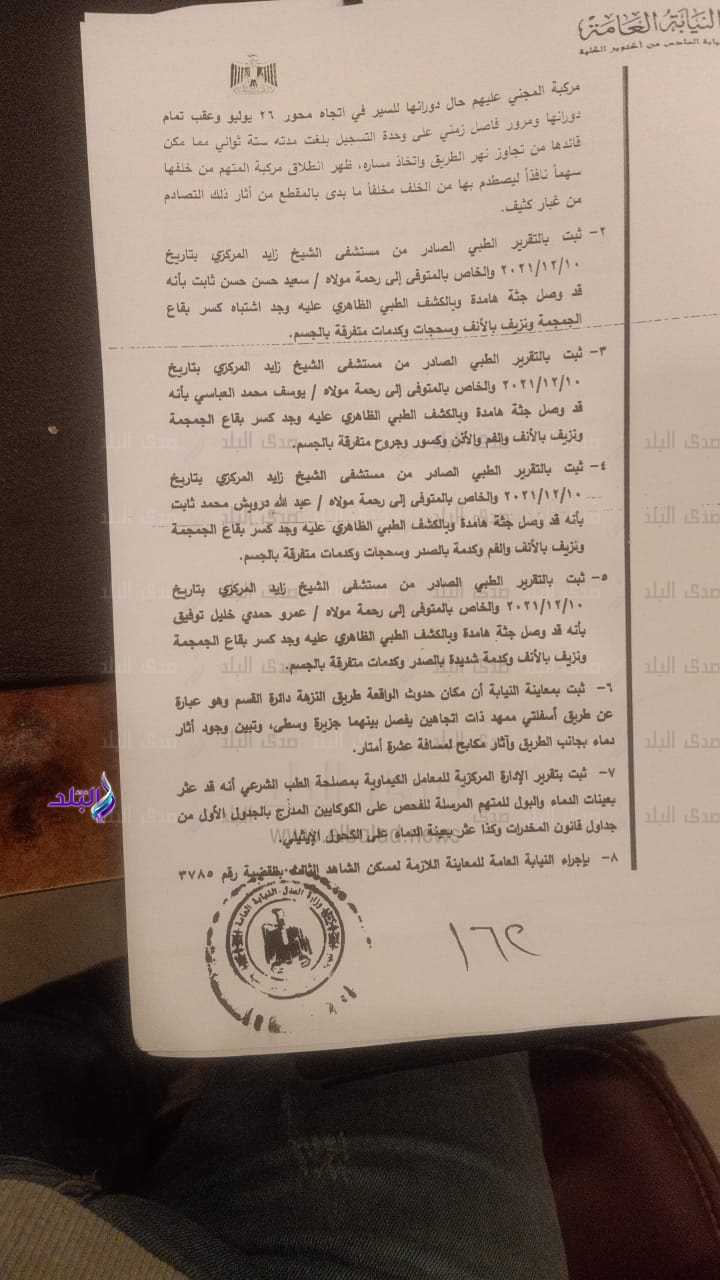 النيابة العامة
مركبة المجني عليهم حال دورانها للسير في اتجاه محور ٢٦ يوليو وعقب تمام
دورانها ومرور فاصل زمني على وحدة التسجيل بلغت مدته ستة ثواني مما مكن
قائدها من تجاوز نهر الطريق واتخاذ مساره، ظهر انطلاق مركبة المتهم من خلفها
سهماً نافذاً ليصطدم بها من الخلف مخلفاً ما بدى بالمقطع من أثار ذلك التصادم
من غبار كثيف.
٢- ثبت بالتقرير الطبي الصادر من مستشفى الشيخ زايد المركزي بتاريخ
٢٠٢١/١٢/١٠ والخاص بالمتوفى إلى رحمة مولاه / سعيد حسن حسن ثابت بأنه
قد وصل جثة هامدة وبالكشف الطبي الظاهري عليه وجد اشتباه كسر بقاع
الجمجمة ونزيف بالأنف وسحجات وكدمات متفرقة بالجسم.
٣- ثبت بالتقرير الطبي الصادر من مستشفى الشيخ زايد المركزي بتاريخ
٢٠٢١/١٢/١٠ والخاص بالمتوفى إلى رحمة مولاه / يوسف محمد العباسي بأنه
قد وصل جثة هامدة وبالكشف الطبي الظاهري عليه وجد كسر بقاع الجمجمة
ونزيف بالأنف والفم والأذن وكسور وجروح متفرقة بالجسم.
٤- ثبت بالتقرير الطبي الصادر من مستشفى الشيخ زايد المركزي بتاريخ
٢٠٢١/١٢/١٠ والخاص بالمتوفى إلى رحمة مولاه / عبد الله درويش محمد ثابت
بأنه قد وصل جثة هامدة وبالكشف الطبي الظاهري عليه وجد كسر بقاع الجمجمة
ونزيف بالأنف والفم وكدمة بالصدر وسحجات وكدمات متفرقة بالجسم.
٥- ثبت بالتقرير الطبي الصادر من مستشفى الشيخ زايد المركزي بتاريخ
٢٠٢١/١٢/١٠ والخاص بالمتوفى إلى رحمة مولاه / عمرو حمدي خليل توفيق
بأنه قد وصل جثة هامدة وبالكشف الطبي الظاهري عليه وجد كسر بقاع الجمجمة
ونزيف بالأنف وكدمة شديدة بالصدر وكدمات متفرقة بالجسم.
٦- ثبت بمعاينة النيابة أن مكان حدوث الواقعة طريق النزهة دائرة القسم وهو عبارة
عن طريق أسفلتي ممهد ذات اتجاهين يفصل بينهما جزيرة وسطى، وتبين وجود أثار
دماء بجانب الطريق وآثار مكابح لمسافة عشرة أمتار.
٧- ثبت بتقرير الإدارة المركزية للمعامل الكيماوية بمصلحة الطب الشرعي أنه قد عثر
بعينات الدماء والبول للمتهم المرسلة للفحص على الكوكايين المدرج بالجدول الأول من
جداول قانون المخدرات وكذا عثر بعينة الدماء على الكحول الإيثيلي.
٨- بإجراء النيابة العامة للمعاينة اللازمة لمسكن الشاهد الثالث بالقضية رقم ٣٧٨٥
وزارة العدل النيابة العامة
صدى البلد
البلد